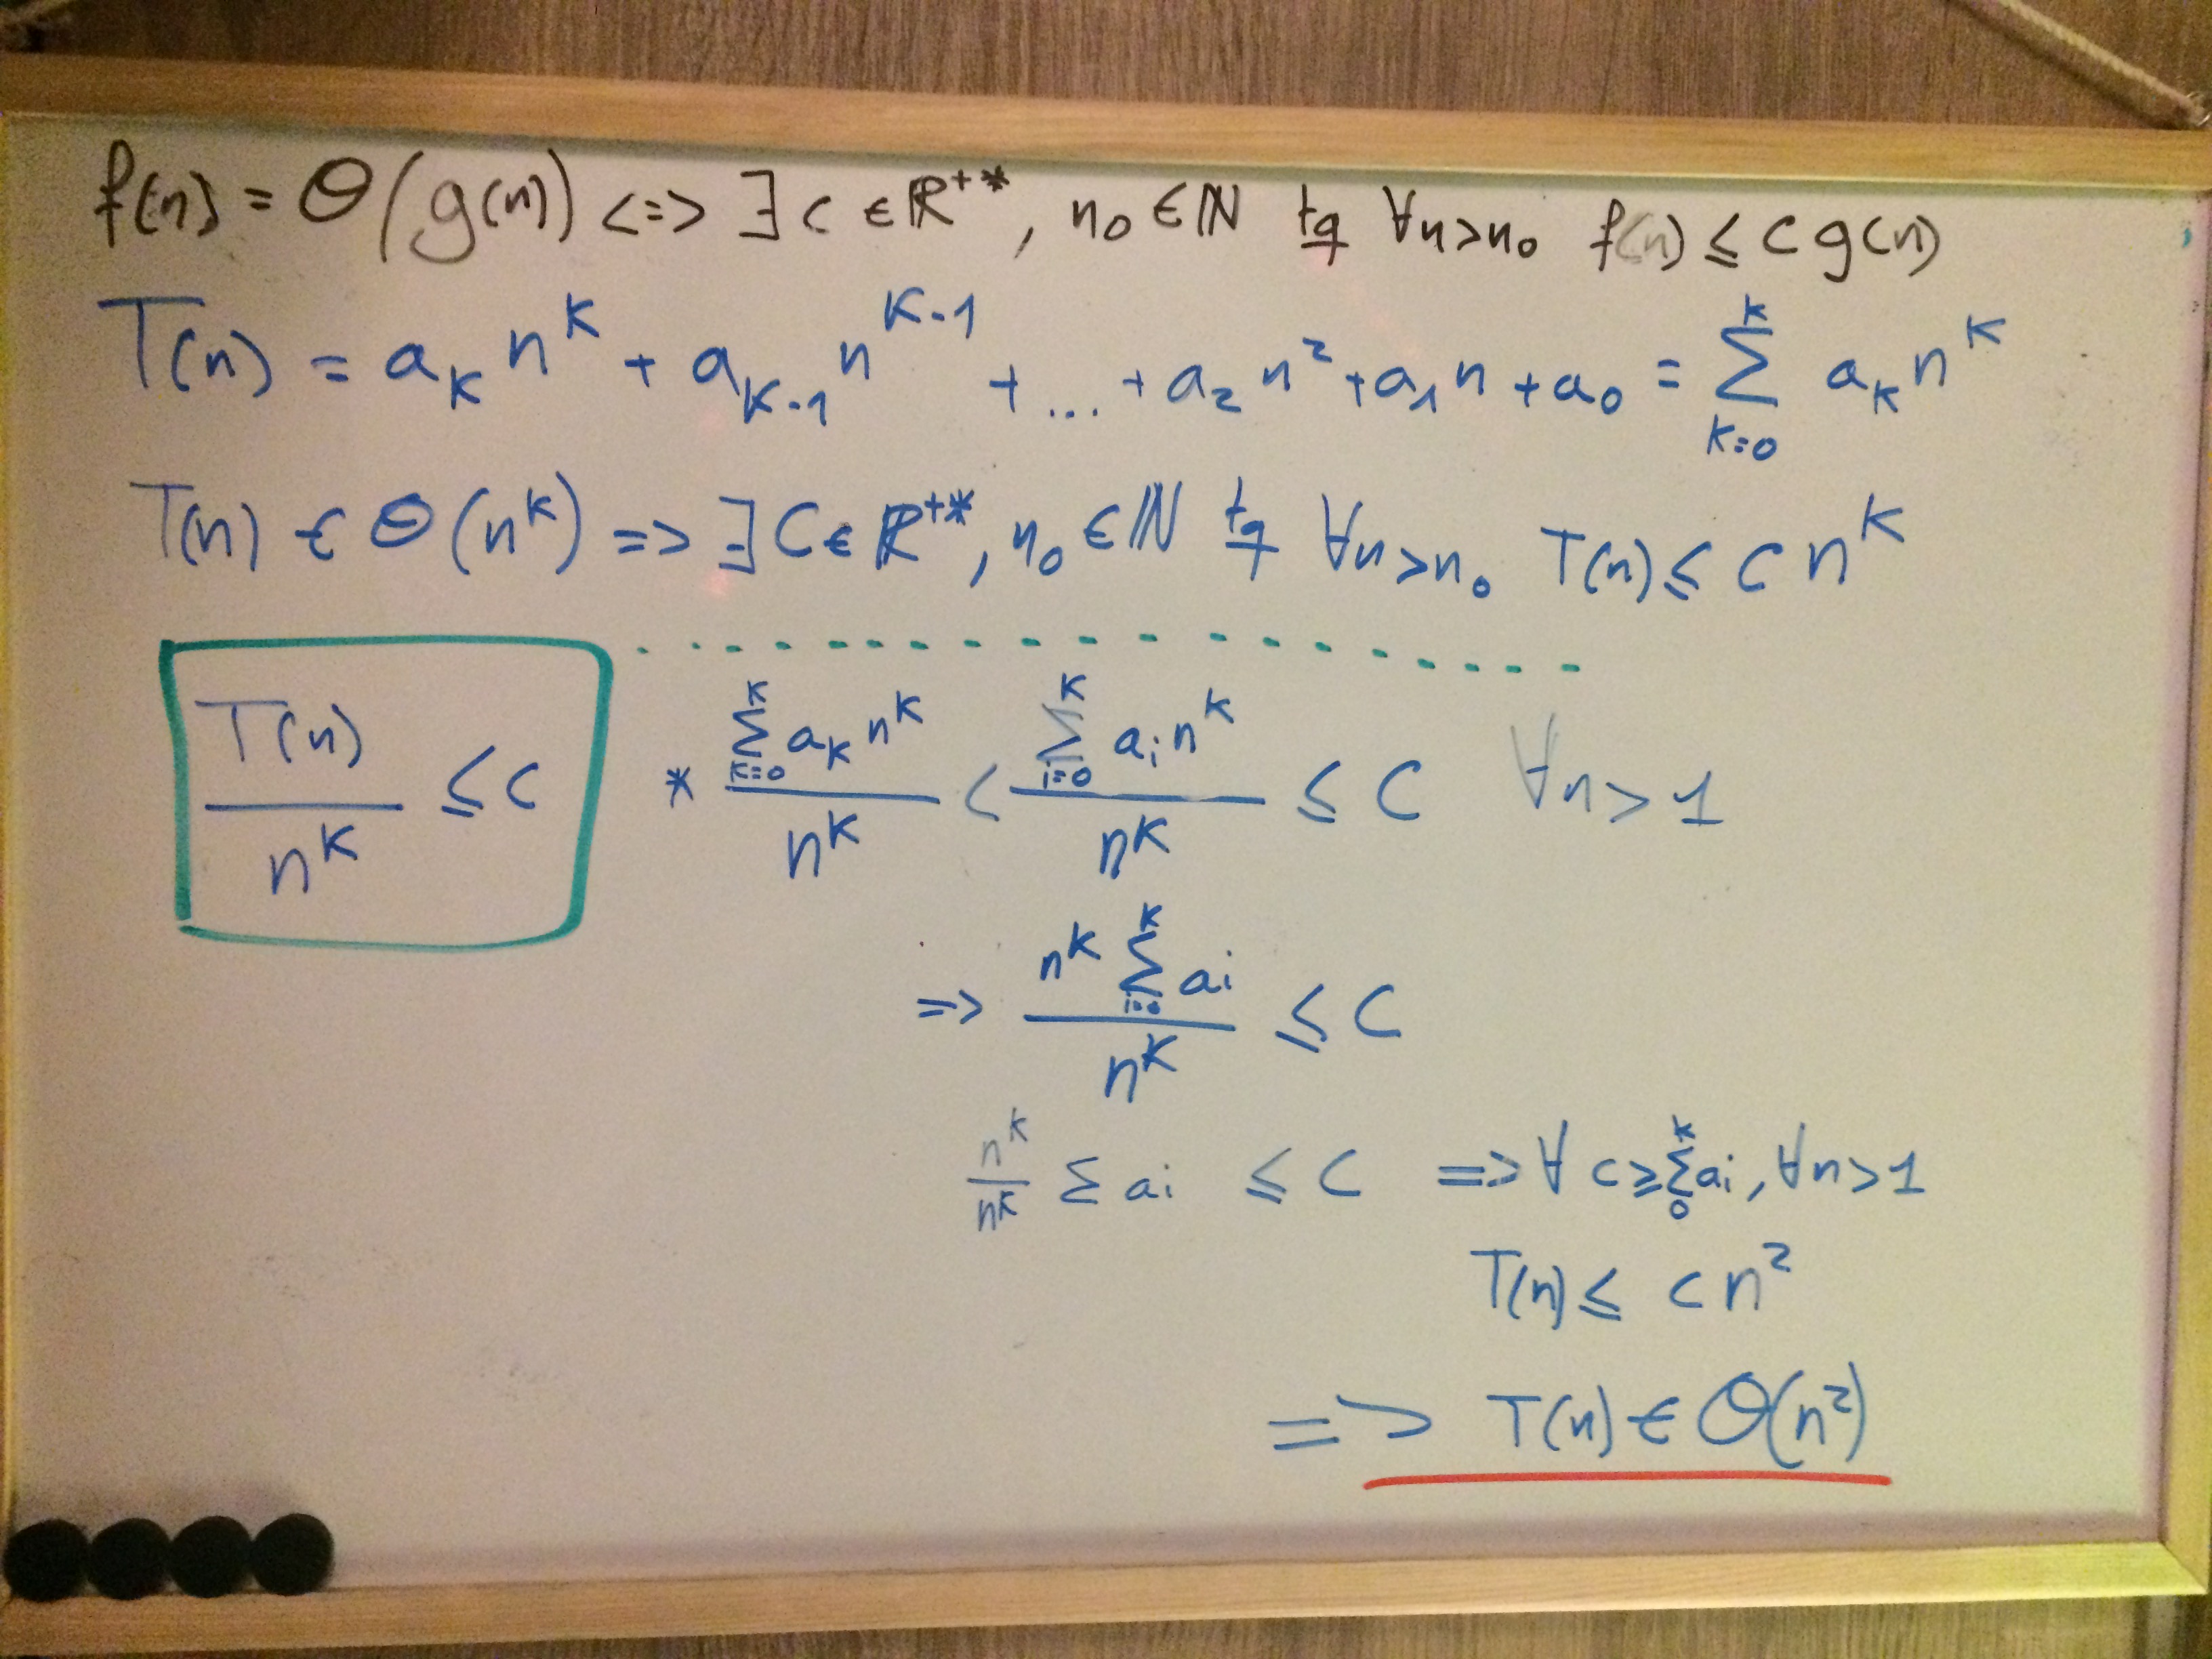 f(n) = Θ(g(n)) <=> ∃ c ∈ ℝ⁺*, n₀ ∈ ℕ tq ∀n>n₀ f(n) ≤ c g(n)
T(n) = a_K n^K + a_{K-1} n^{K-1} + ... + a₂ n² + a₁ n + a₀ = ∑_{K=0}^{K} a_K n^K
T(n) ∈ Θ(n^K) => ∃ C ∈ ℝ⁺*, n₀ ∈ ℕ tq ∀n>n₀ T(n) ≤ C n^K
T(n)/n^K ≤ C * (∑_{K=0}^{K} a_K n^K)/n^K < (∑_{i=0}^{K} a_i n^K)/n^K ≤ C ∀n>1
=> (n^K ∑_{i=0}^{K} a_i)/n^K ≤ C
n^K/n^K ∑ a_i ≤ C => ∀ C ≥ ∑_{0}^{K} a_i, ∀n>1
T(n) ≤ C n²
=> T(n) ∈ O(n²)